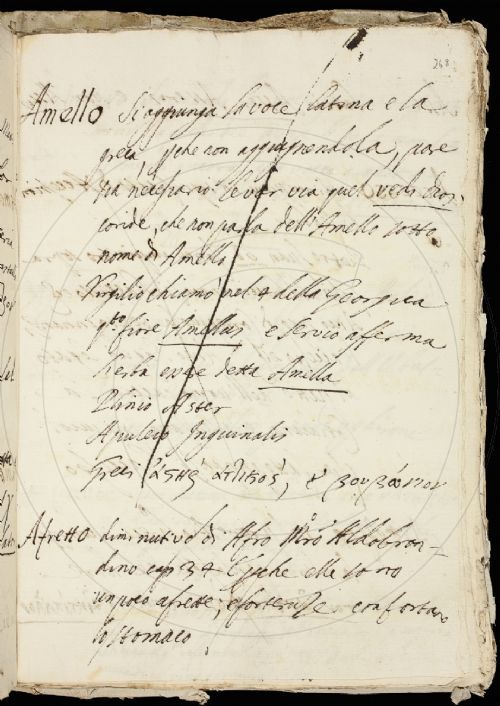 248
Amello Si aggiunga la voce latina e la
greca, pche non aggiugnendola, pare
sia necessario levar via quel vedi Dios
coride, che non parla dell'Amello sotto
nome di Amello
Virgilio chiamò nel 4 della Georgica
qto fiore Amellus e Servio afferma
l'erba essere detta Amella
Plinio Aster
Apuleio Inguinalis
Greci ἀςὴρ ἀττικὸς, & βουβώνιον
Afretto diminutivo di Afro Mro Aldobran-
dino cap 34 E pche elle sono
un poco afrette, e forteruze confortano
lo stomaco,